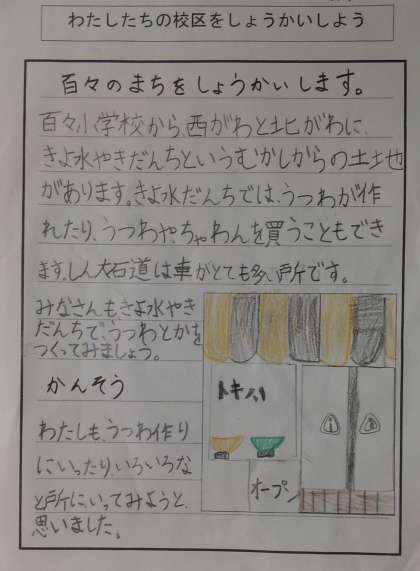 わたしたちの校区をしょうかいしよう
百々のまちをしょうかいします。
百々小学校から、西がわと北がわに、
きよ水やきだんちというむかしからの土地
があります。きよ水だんちでは、うつわが作
れたり、うつわや、ちゃわんを買うこともでき
ます。しん大石道は車がとても多い所です。
みなさんもきよ水やき
だんちで、うつわとかを
つくってみましょう。
かんそう
わたしも、うつわ作り
にいったり、いろいろな
と所にいってみようと、
思いました。
オープン